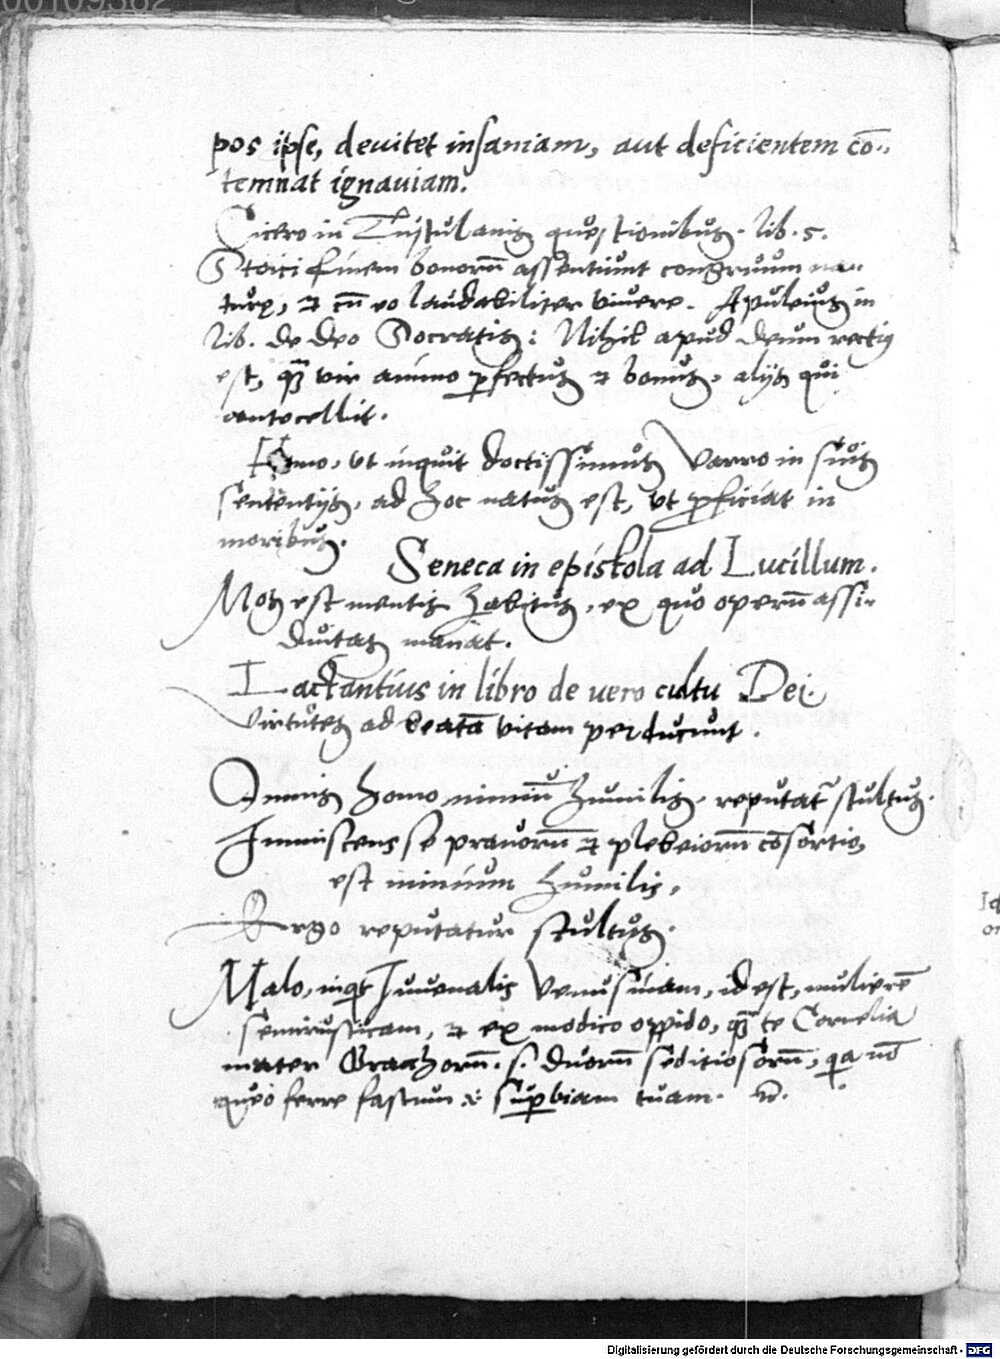 00109382
pos ipse, deuitet insaniam, aut deficientem cō-
temnat ignauiam.
Cicero in Tustulanis questionibus. lib. 5.
Stoici finem bonorū assentiunt congruum na-
turę, et cū eo laudabiliter viuere. Apuleius in
lib. de deo Socratis: Nihil apud deum rectius
est, qꝫ vir animo ꝑfectus et bonus, alijs qui
antecellit.
Homo, ut inquit doctissimus Varro in suis
sententijs, ad hoc natus est, ut ꝓficiat in
moribus.
Seneca in epistola ad Lucillum.
Mos est mentis habitus, ex quo operū assi-
duitas manat.
Lactantius in libro de uero cultu Dei.
Virtutes ad beatā vitam perducunt.
Omnis homo nimiū humilis, reputat᷑ stultus.
Immiscens se prauorū et plebeiorū cōsortio,
est nimium humilis,
Ergo reputatur stultus.
Malo, inqt Juuenalis Venusinam, id est, mulierē
semirusticam, et ex modico oppido, qꝫ te Cornelia
mater Gracchorū. s. duorū seditiosorū, qa nō
queo ferre fastum et suꝑbiam tuam.
Digitalisierung gefördert durch die Deutsche Forschungsgemeinschaft - DFG